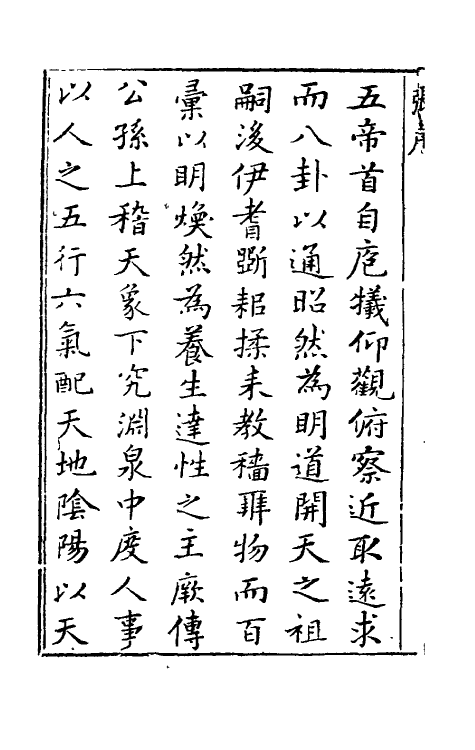 五帝首自庖犧仰觀俯察近取遠求
而八卦以通昭然為明道開天之祖
嗣後伊耆斲耜揉耒教穡辨物而百
彙以明煥然為養生達性之主厥傳
公孫上稽天象下究淵泉中度人事
以人之五行六氣配天地陰陽以天